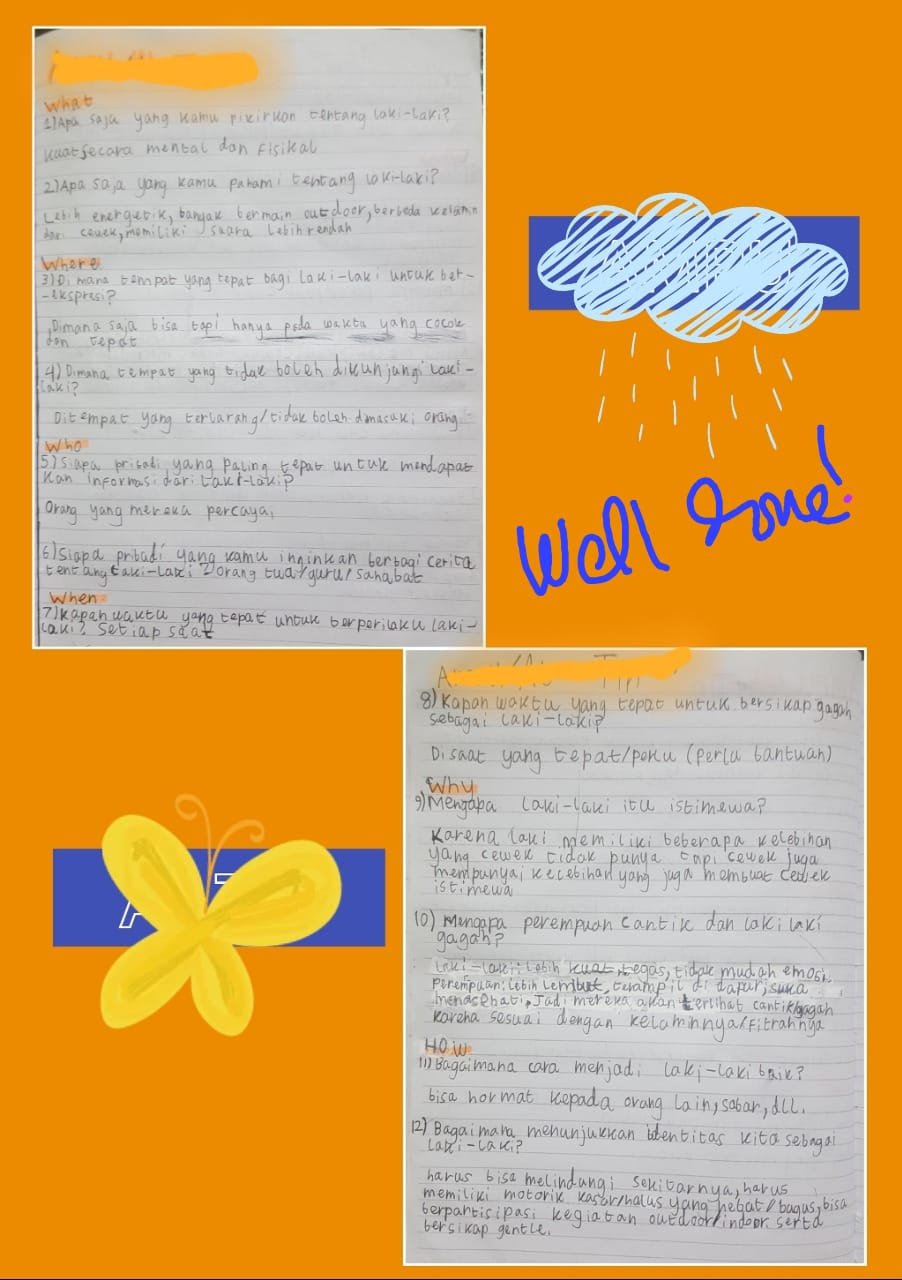 What
1) Apa saja yang kamu pikirkan tentang laki-laki?
kuat secara mental dan fisikal
2) Apa saja yang kamu pahami tentang laki-laki?
Lebih energetik, banyak bermain outdoor, berbeda kelamin
dari cewek, memiliki suara lebih rendah
Where
3) Di mana tempat yang tepat bagi laki-laki untuk ber-
-ekspresi?
Dimana saja bisa tapi hanya pada waktu yang cocok
dan tepat
4) Dimana tempat yang tidak boleh dikunjungi laki-
laki?
Ditempat yang terlarang/tidak boleh dimasuki orang
Who
5) Siapa pribadi yang paling tepat untuk mendapat
kan informasi dari laki-laki?
Orang yang mereka percayai
6) Siapa pribadi yang kamu inginkan berbagi cerita
tentang laki-laki? orang tua/guru/sahabat
When
7) Kapan waktu yang tepat untuk berperilaku laki-
laki? Setiap saat
Well done!
8) Kapan waktu yang tepat untuk bersikap gagah
sebagai laki-laki?
Disaat yang tepat/perlu (perlu bantuan)
Why
9) Mengapa laki-laki itu istimewa?
Karena laki memiliki beberapa kelebihan
yang cewek tidak punya tapi cewek juga
mempunyai kelebihan yang juga membuat cewek
istimewa
10) Mengapa perempuan cantik dan laki laki
gagah?
Laki-laki: Lebih kuat, tegas, tidak mudah emosi
Perempuan: Lebih lembut, terampil di dapur, suka
menasehati, Jadi mereka akan terlihat cantik/gagah
karena sesuai dengan kelaminnya/fitrahnya
How
11) Bagaimana cara menjadi laki-laki baik?
bisa hormat kepada orang lain, sabar, dll.
12) Bagaimana menunjukkan identitas kita sebagai
laki-laki?
harus bisa melindungi sekitarnya, harus
memiliki motorik kasar/halus yang hebat/bagus, bisa
berpartisipasi kegiatan outdoor/indoor serta
bersikap gentle.